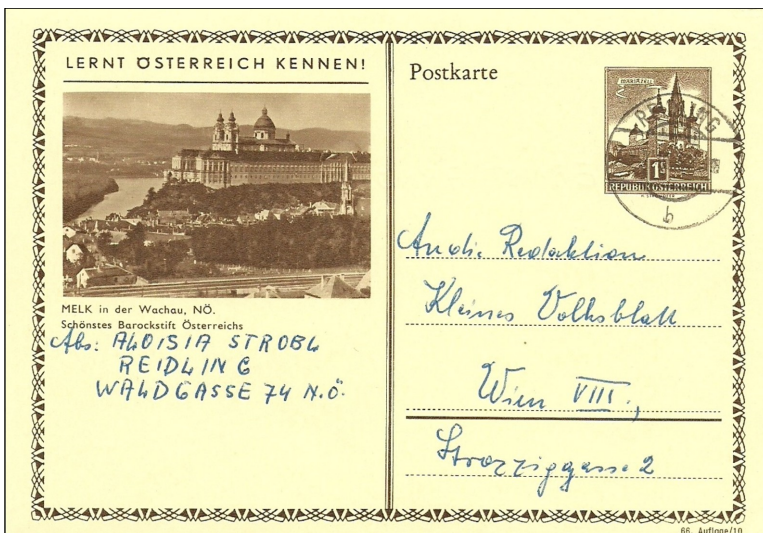 LERNT ÖSTERREICH KENNEN!
MELK in der Wachau, NÖ.
Schönstes Barockstift Österreichs
Abs: ALOISIA STROBL
REIDLING
WALDGASSE 74 N.Ö.
Postkarte
MARIAZELL
1S
REPUBLIK ÖSTERREICH
REIDLING
b
An die Redaktion
Kleines Volksblatt
Wien VIII.,
Strozziggasse 2
66. Auflage/10